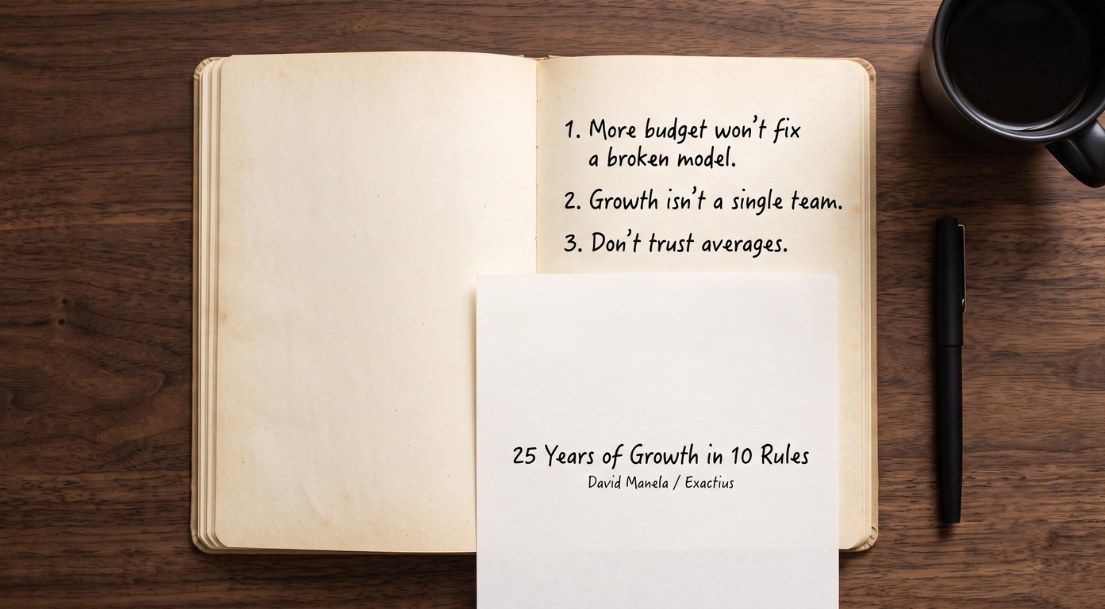 1. More budget won't fix
a broken model.
2. Growth isn't a single team.
3. Don't trust averages.
25 Years of Growth in 10 Rules
David Manela / Exactius